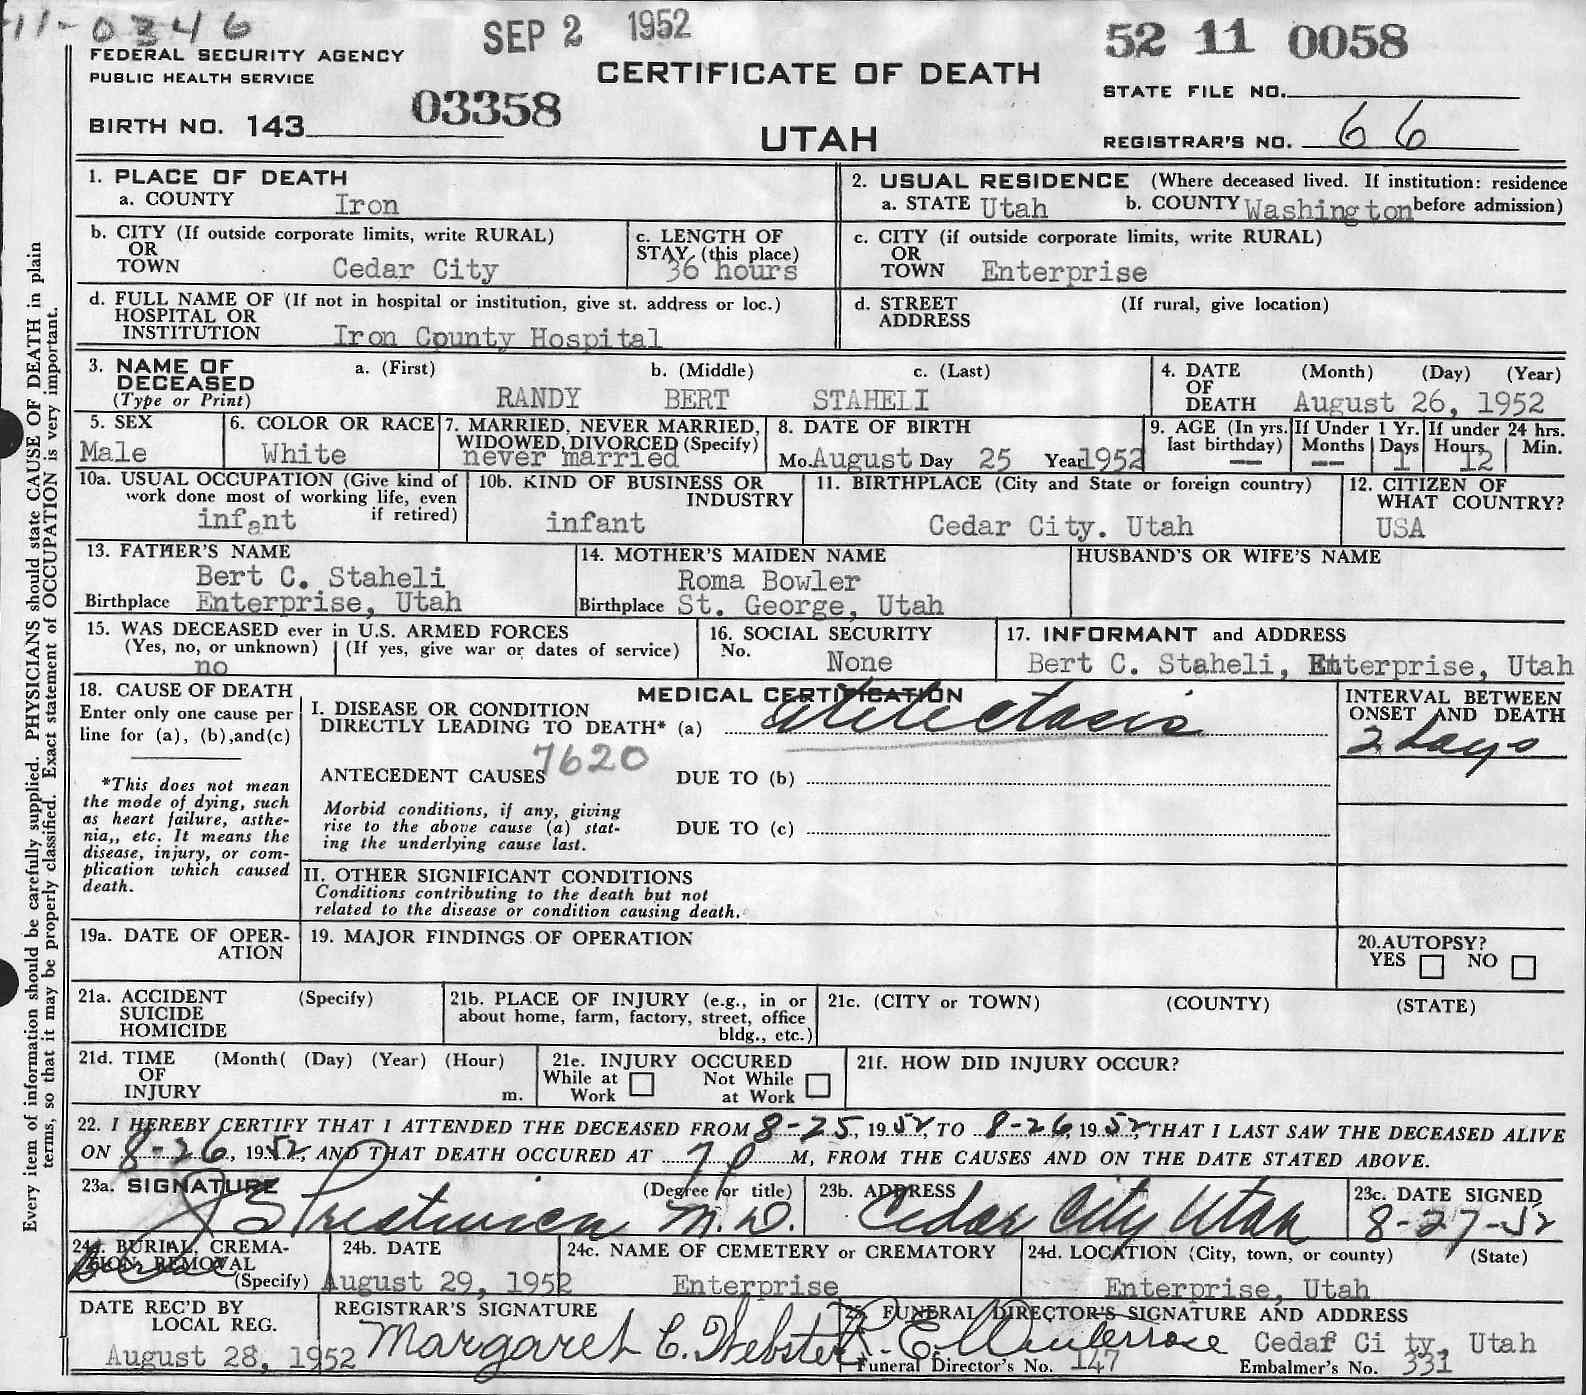 11-0346
SEP 2 1952
52 11 0058
FEDERAL SECURITY AGENCY
PUBLIC HEALTH SERVICE
CERTIFICATE OF DEATH
STATE FILE NO.
BIRTH NO. 143 03358
UTAH
REGISTRAR'S NO. 66
Every item of information should be carefully supplied. PHYSICIANS should state CAUSE OF DEATH in plain
terms, so that it may be properly classified. Exact statement of OCCUPATION is very important.
1. PLACE OF DEATH
a. COUNTY Iron
2. USUAL RESIDENCE (Where deceased lived. If institution: residence
a. STATE Utah b. COUNTY Washington before admission)
b. CITY (If outside corporate limits, write RURAL)
OR
TOWN Cedar City
c. LENGTH OF
STAY (this place)
36 hours
c. CITY (if outside corporate limits, write RURAL)
OR
TOWN Enterprise
d. FULL NAME OF (If not in hospital or institution, give st. address or loc.)
HOSPITAL OR
INSTITUTION Iron County Hospital
d. STREET (If rural, give location)
ADDRESS
3. NAME OF a. (First) b. (Middle) c. (Last)
DECEASED
(Type or Print) RANDY BERT STAHELI
4. DATE (Month) (Day) (Year)
OF
DEATH August 26, 1952
5. SEX
Male
6. COLOR OR RACE
White
7. MARRIED, NEVER MARRIED,
WIDOWED, DIVORCED (Specify)
never married
8. DATE OF BIRTH
Mo. August Day 25 Year 1952
9. AGE (In yrs. If Under 1 Yr. If under 24 hrs.
last birthday) Months Days Hours Min.
-- -- 1 12
10a. USUAL OCCUPATION (Give kind of
work done most of working life, even
if retired)
infant
10b. KIND OF BUSINESS OR
INDUSTRY
infant
11. BIRTHPLACE (City and State or foreign country)
Cedar City. Utah
12. CITIZEN OF
WHAT COUNTRY?
USA
13. FATHER'S NAME
Bert C. Staheli
Birthplace Enterprise, Utah
14. MOTHER'S MAIDEN NAME
Roma Bowler
Birthplace St. George, Utah
HUSBAND'S OR WIFE'S NAME
15. WAS DECEASED ever in U.S. ARMED FORCES
(Yes, no, or unknown) (If yes, give war or dates of service)
no
16. SOCIAL SECURITY
No. None
17. INFORMANT and ADDRESS
Bert C. Staheli, Enterprise, Utah
18. CAUSE OF DEATH
Enter only one cause per
line for (a), (b),and(c)
*This does not mean
the mode of dying, such
as heart failure, asthe-
nia,, etc. It means the
disease, injury, or com-
plication which caused
death.
MEDICAL CERTIFICATION
I. DISEASE OR CONDITION
DIRECTLY LEADING TO DEATH* (a) Atelectasis
7620
ANTECEDENT CAUSES DUE TO (b)
Morbid conditions, if any, giving
rise to the above cause (a) stat-
ing the underlying cause last.
DUE TO (c)
II. OTHER SIGNIFICANT CONDITIONS
Conditions contributing to the death but not
related to the disease or condition causing death.
INTERVAL BETWEEN
ONSET AND DEATH
2 days
19a. DATE OF OPER-
ATION
19. MAJOR FINDINGS OF OPERATION
20.AUTOPSY?
YES NO
21a. ACCIDENT (Specify)
SUICIDE
HOMICIDE
21b. PLACE OF INJURY (e.g., in or
about home, farm, factory, street, office
bldg., etc.)
21c. (CITY or TOWN) (COUNTY) (STATE)
21d. TIME (Month( (Day) (Year) (Hour)
OF
INJURY m.
21e. INJURY OCCURED
While at Not While
Work at Work
21f. HOW DID INJURY OCCUR?
22. I HEREBY CERTIFY THAT I ATTENDED THE DECEASED FROM 8-25, 1952, TO 8-26, 1952, THAT I LAST SAW THE DECEASED ALIVE
ON 8-26, 1952, AND THAT DEATH OCCURED AT 7 P M, FROM THE CAUSES AND ON THE DATE STATED ABOVE.
23a. SIGNATURE (Degree or title)
Prestwich M.D.
23b. ADDRESS
Cedar City Utah
23c. DATE SIGNED
8-27-52
24a. BURIAL, CREMA-
TION, REMOVAL
(Specify) Burial
24b. DATE
August 29, 1952
24c. NAME OF CEMETERY or CREMATORY
Enterprise
24d. LOCATION (City, town, or county) (State)
Enterprise, Utah
DATE REC'D BY
LOCAL REG.
August 28, 1952
REGISTRAR'S SIGNATURE
Margaret C. Webster
25. FUNERAL DIRECTOR'S SIGNATURE AND ADDRESS
Cedar City, Utah
Funeral Director's No. 147 Embalmer's No. 331